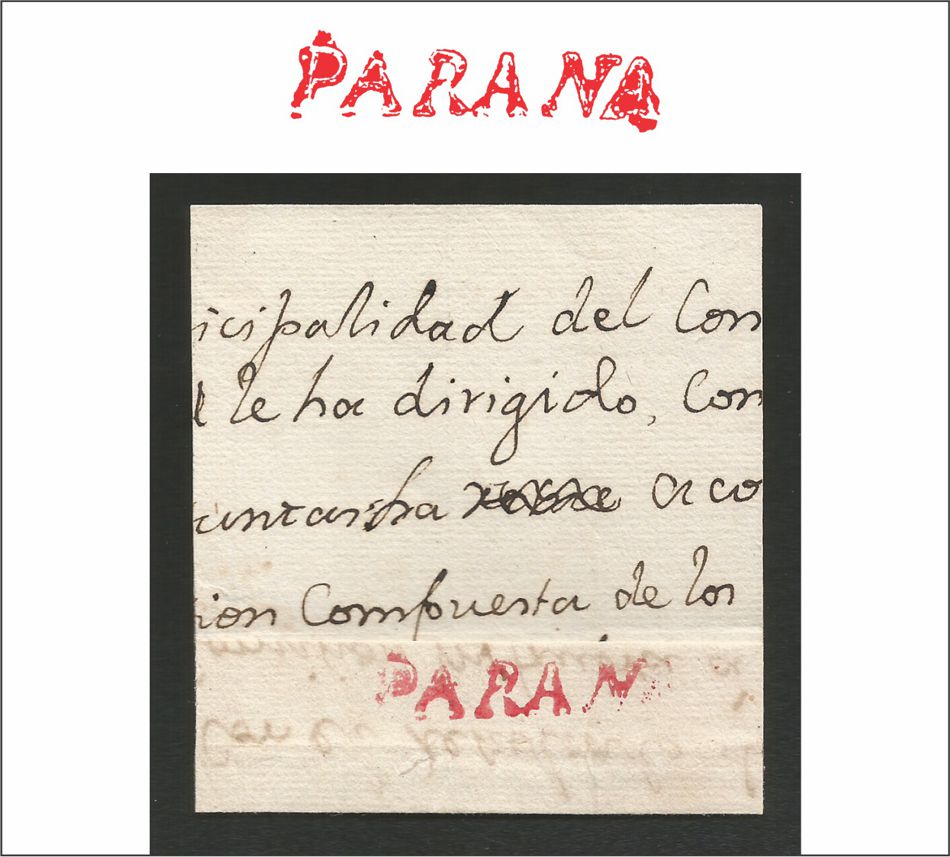 PARANA
icipalidad del Con
le ha dirigido, Con
aco
ion Compuesta de los
PARAN